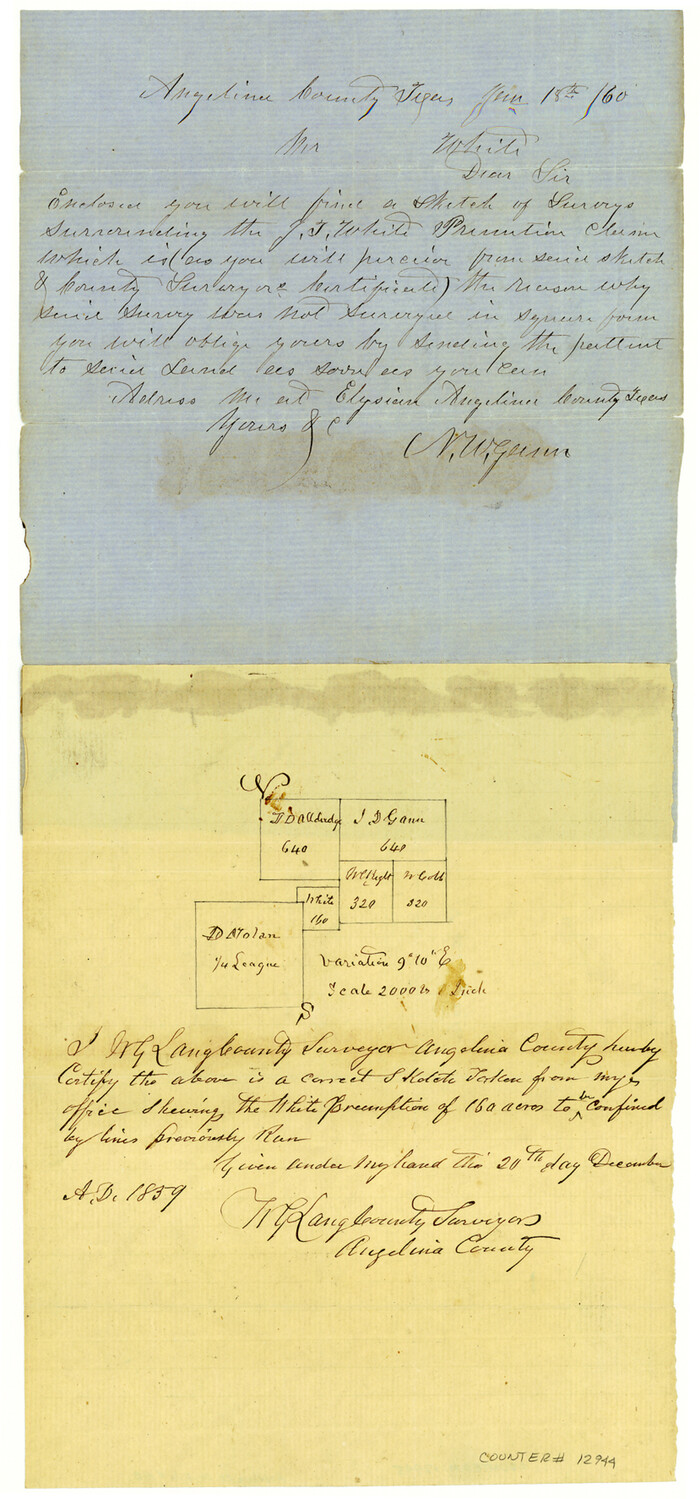 Angelina County Texas Jan 18th /60
Mr White
Dear Sir
Enclosed you will find a sketch of Surveys
Surrounding the J. T. White Preemtion Claim
which is (as you will perceive from said sketch
& County Surveyors Certificate) the reason why
said Survey was not surveyed in square form
you will oblige yours by sending the pattent
to said Land as soon as you can
Adress Me at Elysian Angelina County Texas
Yours &c
N. W. Gann
N
D D Allderdge
640
J D Gann
640
320
320
White
160
D Nolan
1/4 League
Variation 9°10' E
Scale 2000 vs 1 Inch
S
I W G Lang County Surveyor Angelina County hereby
Certify the above is a correct Sketch Taken from my
office Shewing the White Preemption of 160 acres to be Confined
by lines previously Run
Given under My hand this 20th day December
A.D. 1859
W G Lang County Surveyor
Angelina County
COUNTER# 12944